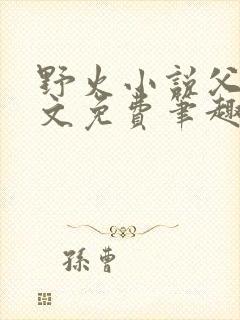 野火小說父
文免費筆趣
孫曹